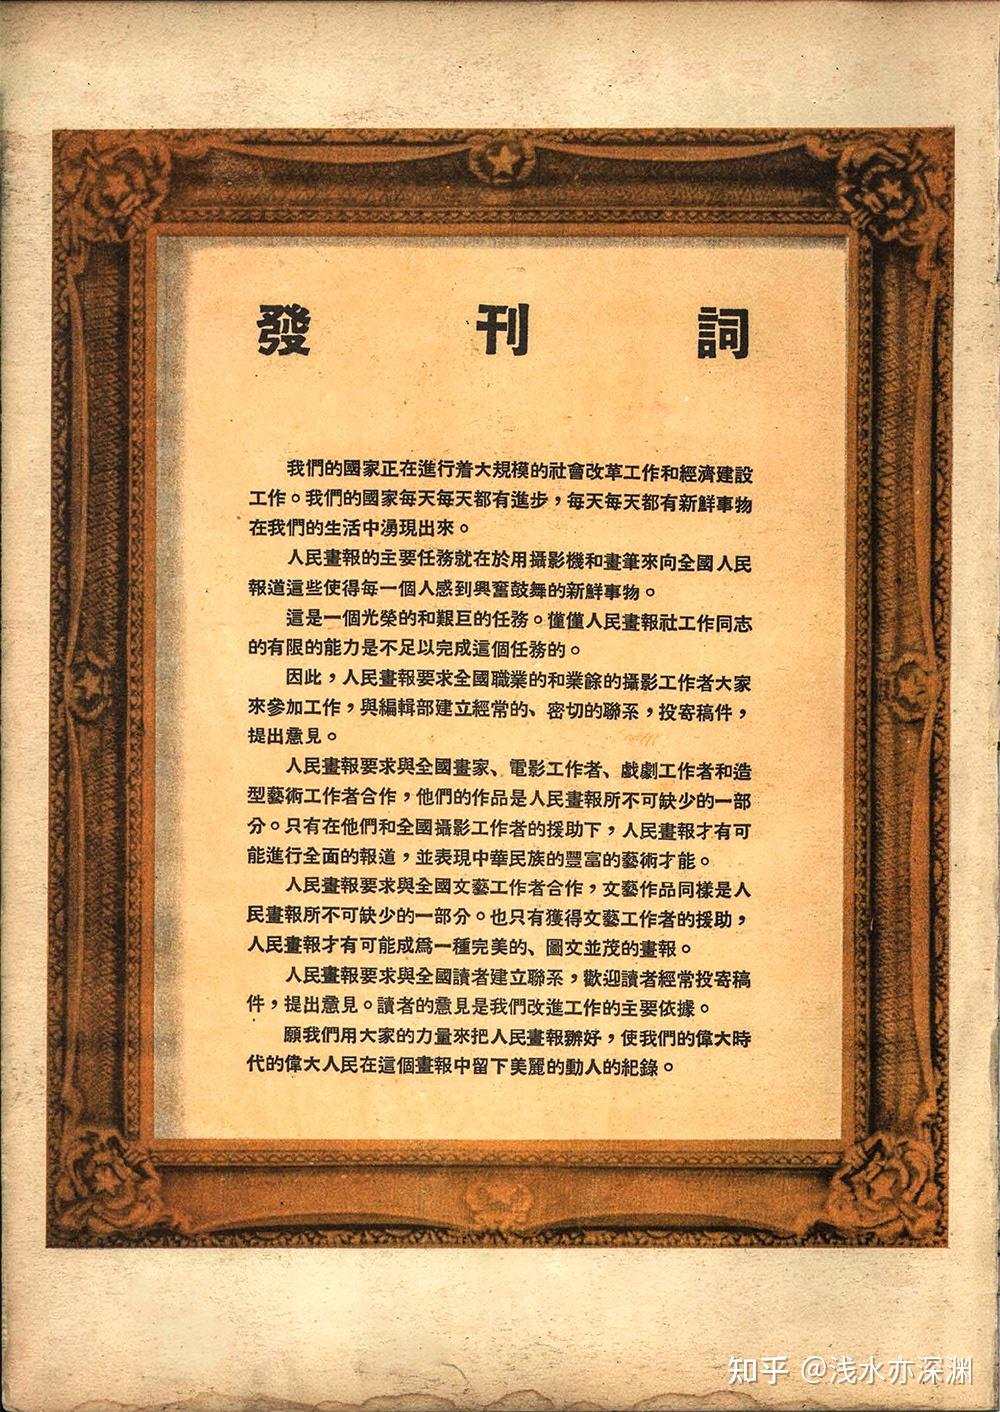 發刊詞
我們的國家正在進行着大規模的社會改革工作和經濟建設
工作。我們的國家每天每天都有進步，每天每天都有新鮮事物
在我們的生活中湧現出來。
人民畫報的主要任務就在於用攝影機和畫筆來向全國人民
報道這些使得每一個人感到興奮鼓舞的新鮮事物。
這是一個光榮的和艱巨的任務。僅僅人民畫報社工作同志
的有限的能力是不足以完成這個任務的。
因此，人民畫報要求全國職業的和業餘的攝影工作者大家
來參加工作，與編輯部建立經常的、密切的聯系，投寄稿件，
提出意見。
人民畫報要求與全國畫家、電影工作者、戲劇工作者和造
型藝術工作者合作，他們的作品是人民畫報所不可缺少的一部
分。只有在他們和全國攝影工作者的援助下，人民畫報才有可
能進行全面的報道，並表現中華民族的豐富的藝術才能。
人民畫報要求與全國文藝工作者合作，文藝作品同樣是人
民畫報所不可缺少的一部分。也只有獲得文藝工作者的援助，
人民畫報才有可能成爲一種完美的、圖文並茂的畫報。
人民畫報要求與全國讀者建立聯系，歡迎讀者經常投寄稿
件，提出意見。讀者的意見是我們改進工作的主要依據。
願我們用大家的力量來把人民畫報辦好，使我們的偉大時
代的偉大人民在這個畫報中留下美麗的動人的紀錄。
知乎 @浅水亦深渊